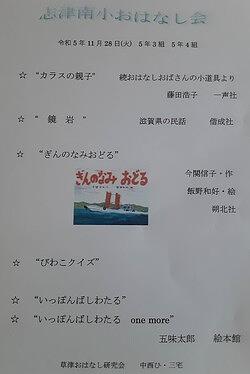 志津南小おはなし会
令和5年11月28日(火) 5年3組 5年4組
☆ "カラスの親子" 続おはなしおばさんの小道具より
藤田浩子 一声社
☆ "鏡岩" 滋賀県の民話 偕成社
☆ "ぎんのなみおどる"
今関信子・作
飯野和好・絵
朔北社
ぎんのなみ おどる
☆ "びわこクイズ"
☆ "いっぽんばしわたる"
☆ "いっぽんばしわたる one more"
五味太郎 絵本館
草津おはなし研究会 中西ひ・三宅